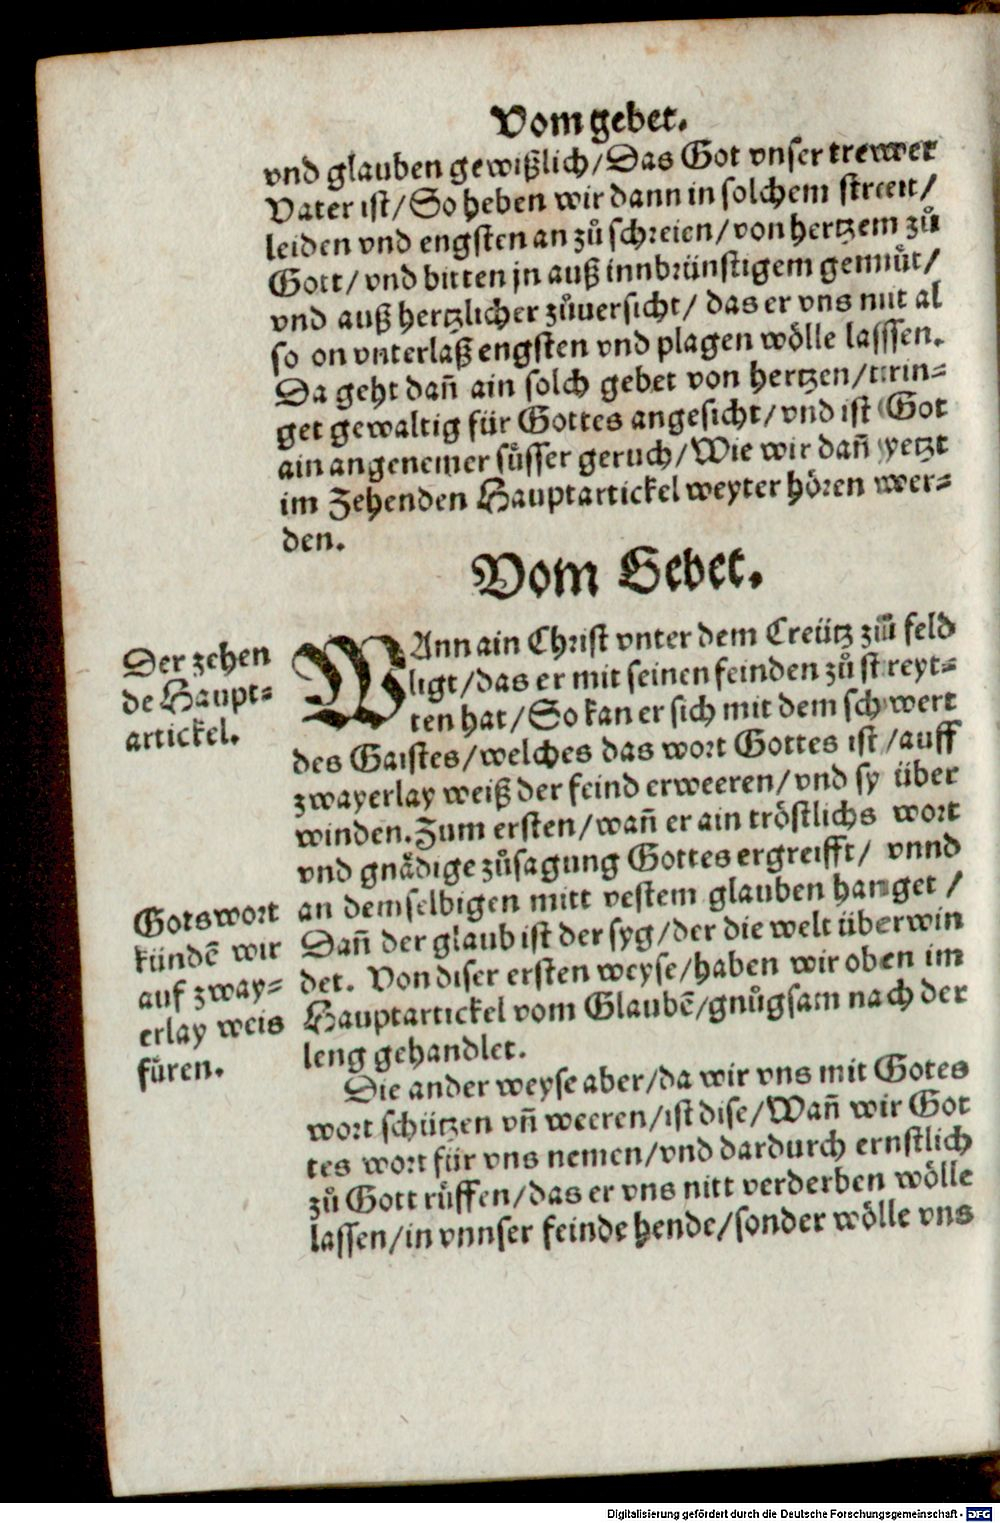 Vom gebet.
vnd glauben gewißlich/Das Got vnser trewer
Vater ist/So heben wir dann in solchem streeit/
leiden vnd engsten an zů schreien/von hertzem zů
Gott/vnd bitten jn auß innbrünstigem gemüt/
vnd auß hertzlicher zůuersicht/ das er vns nit al
so on vnterlaß engsten vnd plagen wölle lasssen.
Da geht dañ ain solch gebet von hertzen/trin-
get gewaltig für Gottes angesicht/vnd ist Got
ain angenemer süsser geruch/Wie wir dañ yetzt
im Zehenden Hauptartickel weyter hören wer-
den.
Vom Gebet.
Der zehen
de Haupt-
artickel.
WAnn ain Christ vnter dem Creütz zů feld
ligt/das er mit seinen feinden zů streyt-
ten hat/So kan er sich mit dem schwert
des Gaistes/welches das wort Gottes ist/auff
zwayerlay weiß der feind erweeren/vnd sy über
winden.Zum ersten/wañ er ain tröstlichs wort
vnd gnädige zůsagung Gottes ergreifft/ vnnd
Gotswort
kündẽ wir
auf zway-
erlay weis
füren.
an demselbigen mitt vestem glauben hanget /
Dañ der glaub ist der syg/der die welt überwin
det. Von diser ersten weyse/haben wir oben im
Hauptartickel vom Glaubẽ/gnůgsam nach der
leng gehandlet.
Die ander weyse aber/da wir vns mit Gotes
wort schützen vñ weeren/ist dise/Wañ wir Got
tes wort für vns nemen/vnd dardurch ernstlich
zů Gott rüffen/das er vns nitt verderben wölle
lassen/in vnnser feinde hende/sonder wölle vns
Digitalisierung gefördert durch die Deutsche Forschungsgemeinschaft - DFG